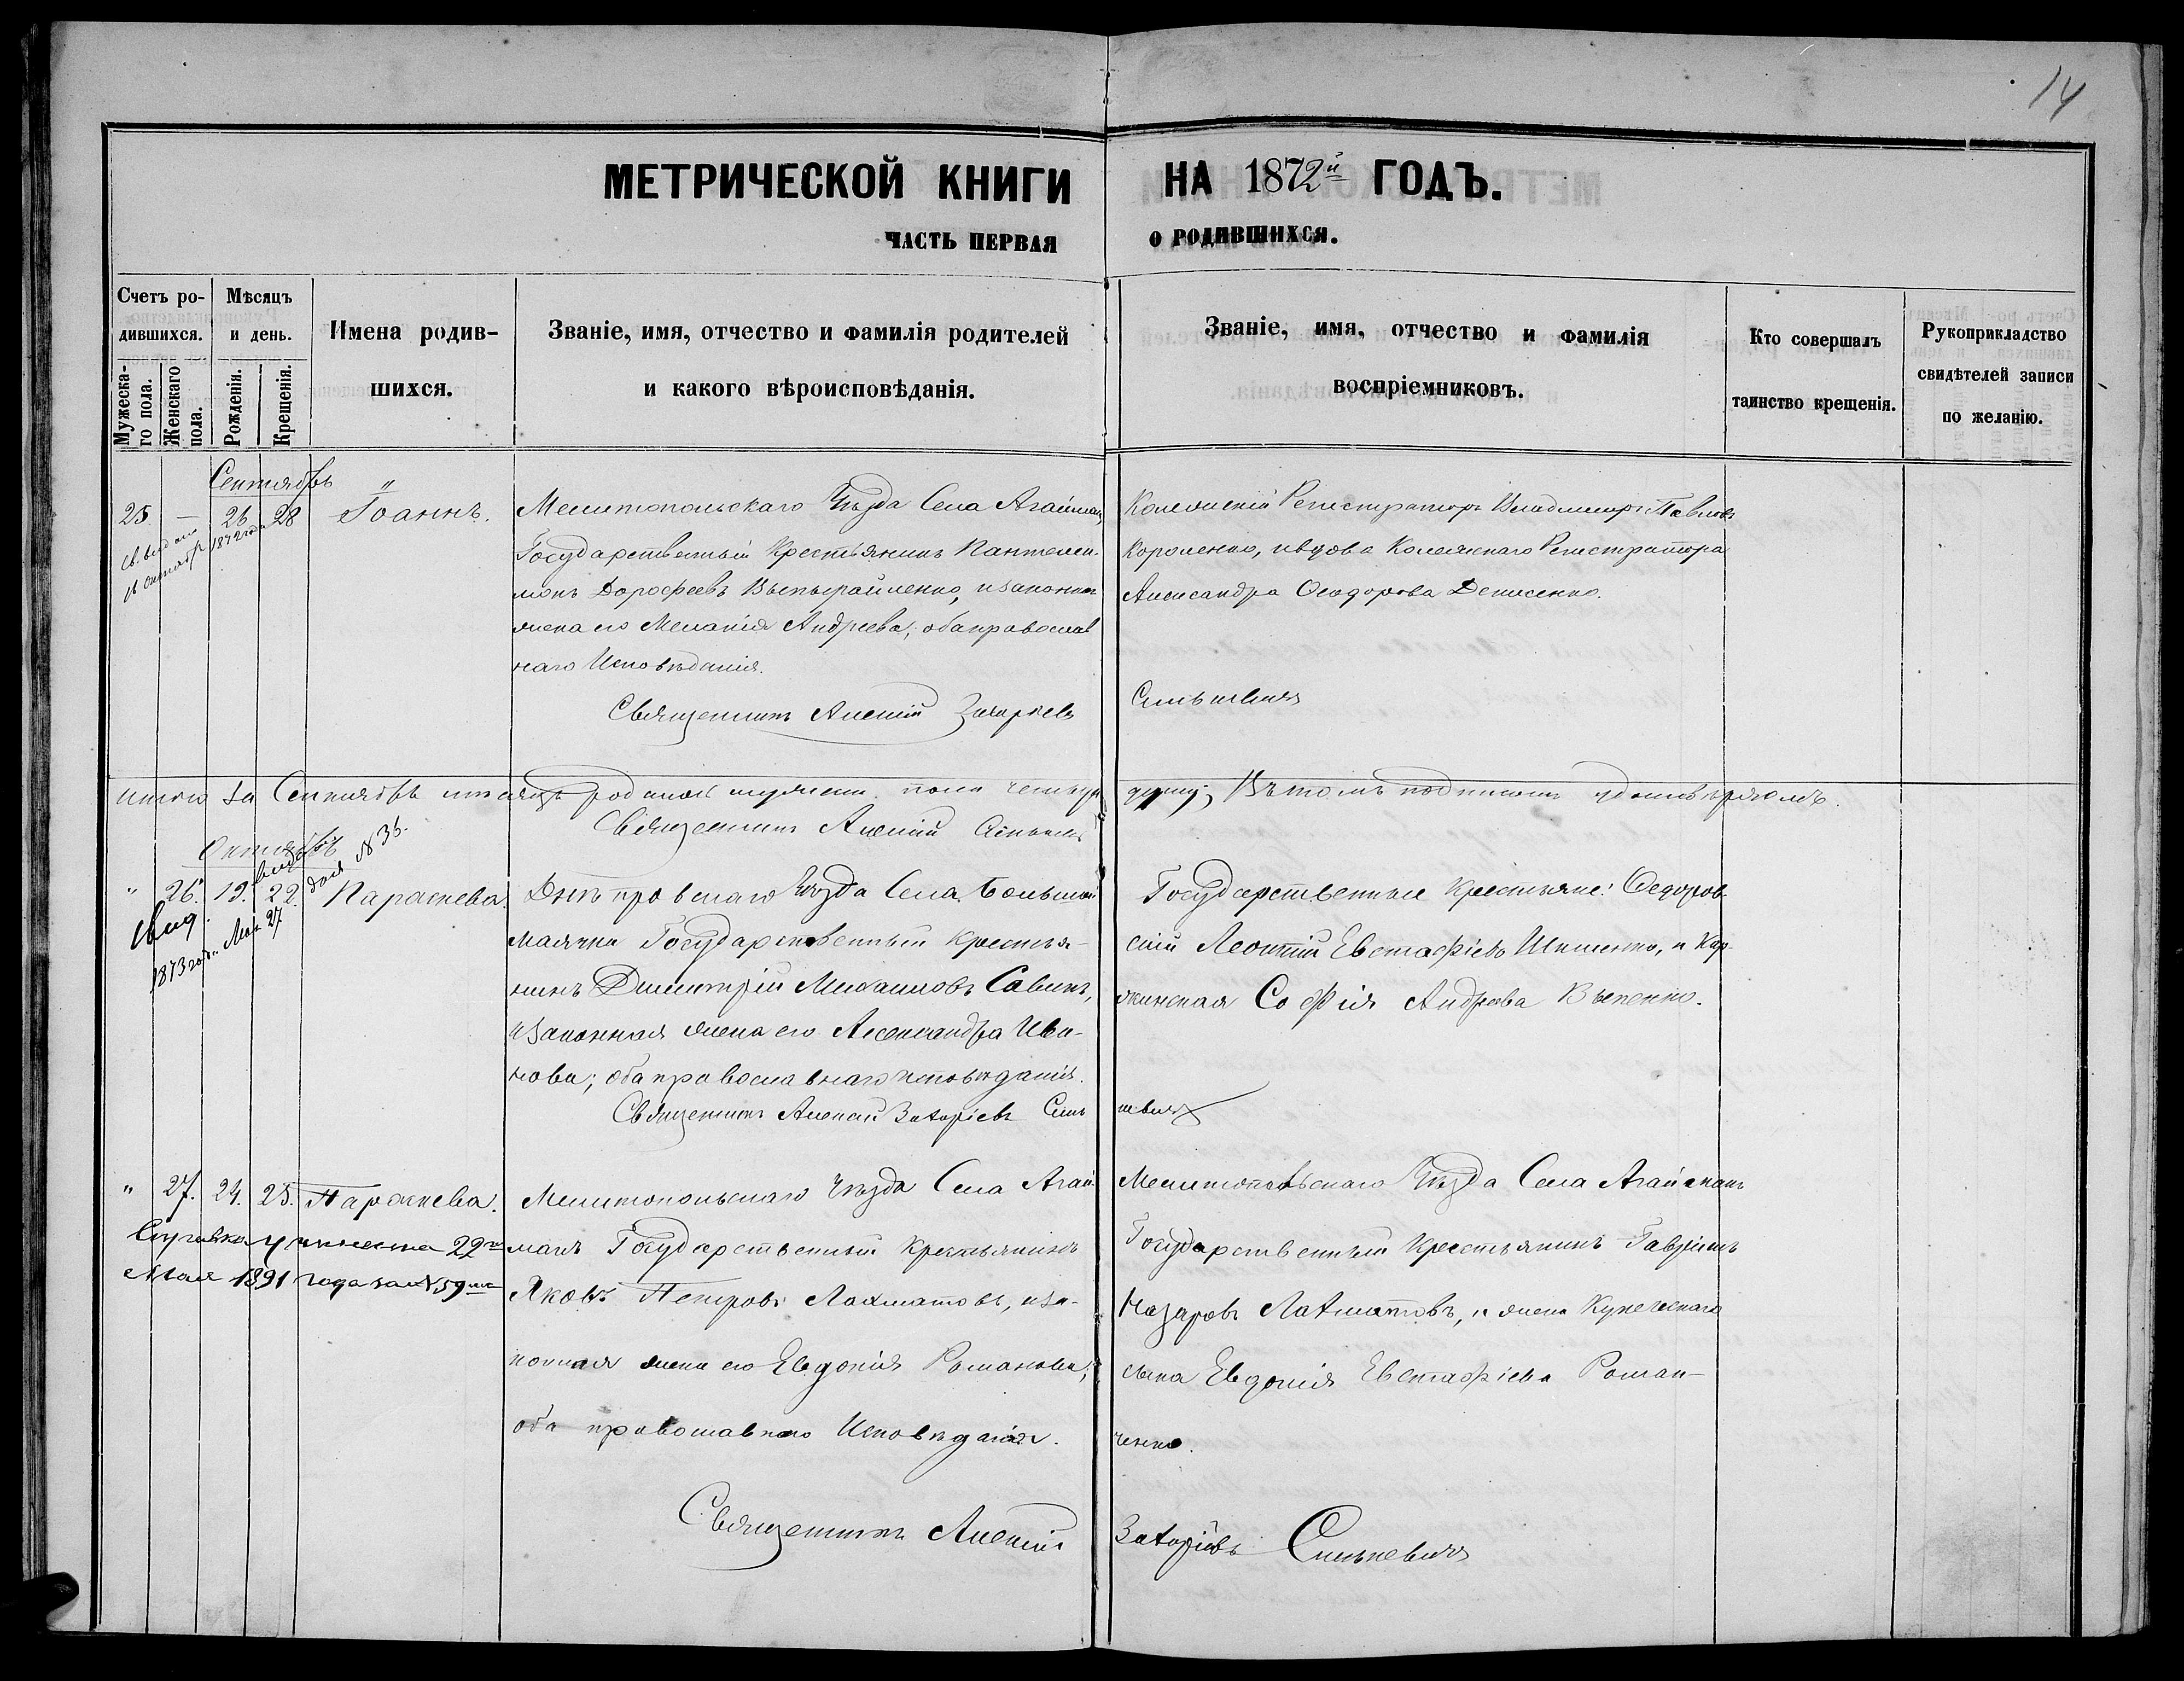 14
МЕТРИЧЕСКОЙ КНИГИ НА 1872й ГОДЪ.
ЧАСТЬ ПЕРВАЯ О РОДИВШИХСЯ.
Счетъ ро-
дившихся.
Мужеска-
го пола.
Женскаго
пола.
Мѣсяцъ
и день.
Рожденія.
Крещенія.
Имена родив-
шихся.
Званіе, имя, отчество и фамилія родителей
и какого вѣроисповѣданія.
Званіе, имя, отчество и фамилія
воспріемниковъ.
Кто совершалъ
таинство крещенія.
Рукоприкладство
свидѣтелей записи
по желанію.
Сентябрь
25 — 26 28 Іоаннъ.
1872 года
Мелитопольскаго Уѣзда Села Агайманъ
Государственный Крестьянинъ Пантелей-
монъ Дорофеевъ, изаконная
жена его Меланія Андреева; оба православ
наго Исповѣданія.
Священникъ Алексій Захаріевъ
Колежскій Регистраторъ Владимиръ Павловъ
Короленко, ивдова Колежскаго Регистратора
Александра Ѳеодорова Денисенко.
Синькевичъ
Итого за Сентябрь мѣсяцъ родилось мужеска пола четыре души; Въ томъ подписомъ удостовѣряемъ.
Священникъ Алексій
Октябрь
" 26. 19. 22. Параскева.
№ 36.
свид.
1873 года Мая 27
Днѣпровскаго Уѣзда Села Большой
маячки Государственный крестья-
нинъ Димитрій Михаиловъ Савинъ,
изаконная жена его Александра Ива-
нова; оба православнаго исповѣданія.
Священникъ Алексій Захаріевъ Синь
кевичъ
Государственные крестьяне: Федоров
скій Леонтій Евстафіевъ Шишенко, и Кар-
жинская Софія Андреева
" 27. 24. 25. Параскева.
Справка учинена 22го
Мая 1891 года за №59мъ
Мелитопольскаго Уѣзда Села Агай
манъ Государственный Крестьянинъ
Яковъ Петровъ Лахматовъ, иза-
конная жена его Евдокія Романова;
оба православнаго Исповѣданія.
Мелитопольскаго Уѣзда Села Агайманъ
Государственный Крестьянинъ Гавріилъ
Назаровъ Лахматовъ, и жена Купеческаго
сына Евдокія Евстафіева Роман-
ченко.
Священникъ Алексій Захаріевъ Синькевичъ